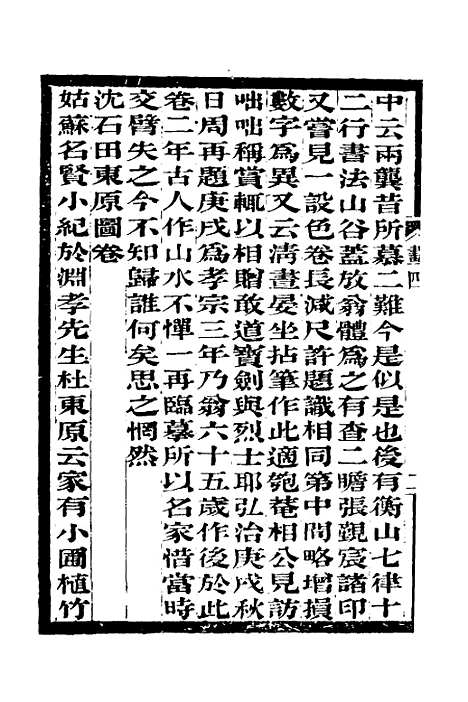 中云兩龔昔所慕二難今是似是也後有衡山七律十
二行書法山谷蓋放翁體爲之有查二瞻張覲宸諸印
又嘗見一設色卷長減尺許題識相同第中間略增損
數字爲異又云淸晝晏坐拈筆作此適匏菴相公見訪
咄咄稱賞輒以相贈敢道寶劍與烈士耶弘治庚戌秋
日周再題庚戌爲孝宗三年乃翁六十五歲作後於此
卷二年古人作山水不憚一再臨摹所以名家惜當時
交臂失之今不知歸誰何矣思之惘然
沈石田東原圖卷
姑蘇名賢小紀於淵孝先生杜東原云家有小圃植竹
畫四
二